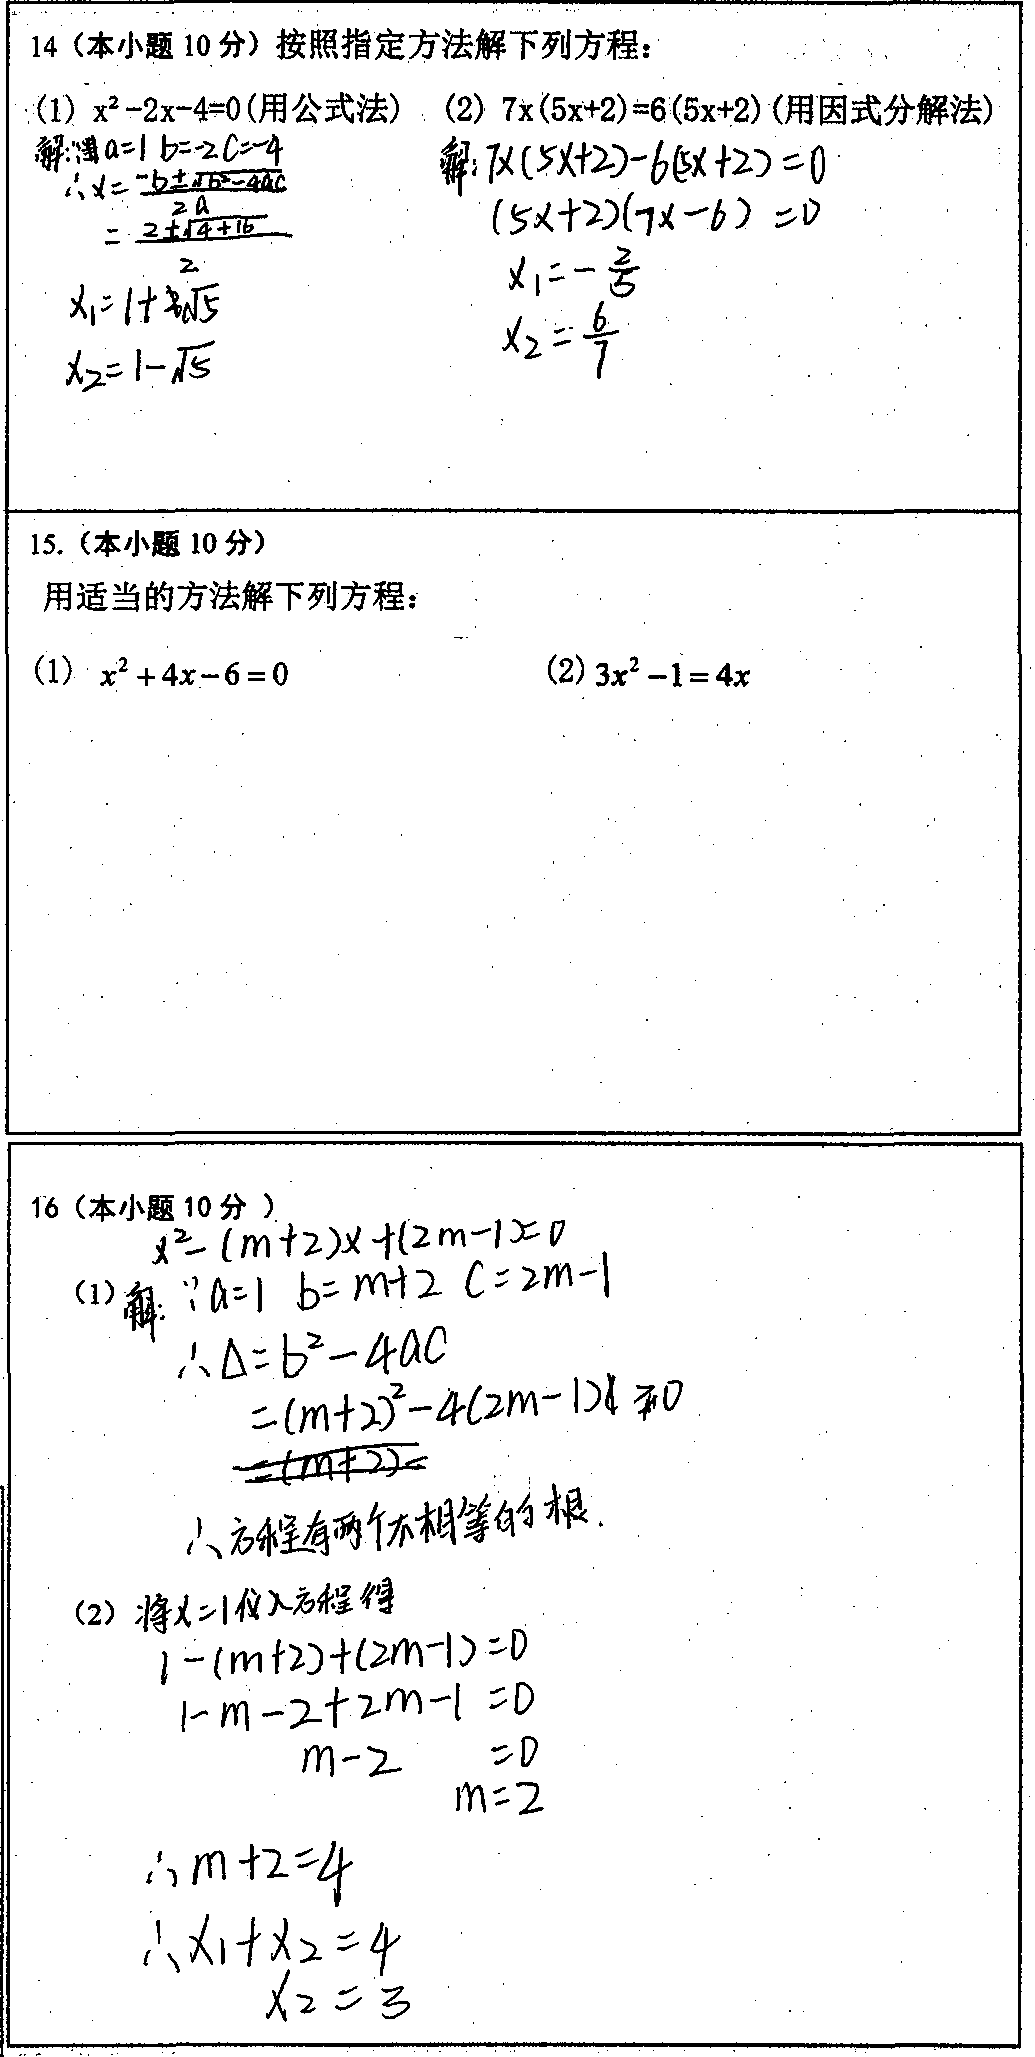 14（本小题 10 分）按照指定方法解下列方程：
(1) x²-2x-4=0(用公式法)
解: a=1 b=-2 c=-4
∴x=(-b±√(b²-4ac))/2a
=(2±√(4+16))/2
x₁=1+√5
x₂=1-√5
(2) 7x(5x+2)=6(5x+2)(用因式分解法)
解: 7x(5x+2)-6(5x+2)=0
(5x+2)(7x-6)=0
x₁=-2/5
x₂=6/7
15.（本小题 10 分）
用适当的方法解下列方程：
(1) x²+4x-6=0
(2) 3x²-1=4x
16（本小题 10 分 ）
x²-(m+2)x+(2m-1)=0
(1) 解: ∵a=1 b=m+2 c=2m-1
∴Δ=b²-4ac
=(m+2)²-4(2m-1) 0
=(m+2)
∴方程有两个不相等的根.
(2) 将x=1代入方程得
1-(m+2)+(2m-1)=0
1-m-2+2m-1=0
m-2 =0
m=2
∴m+2=4
∴x₁+x₂=4
x₂=3